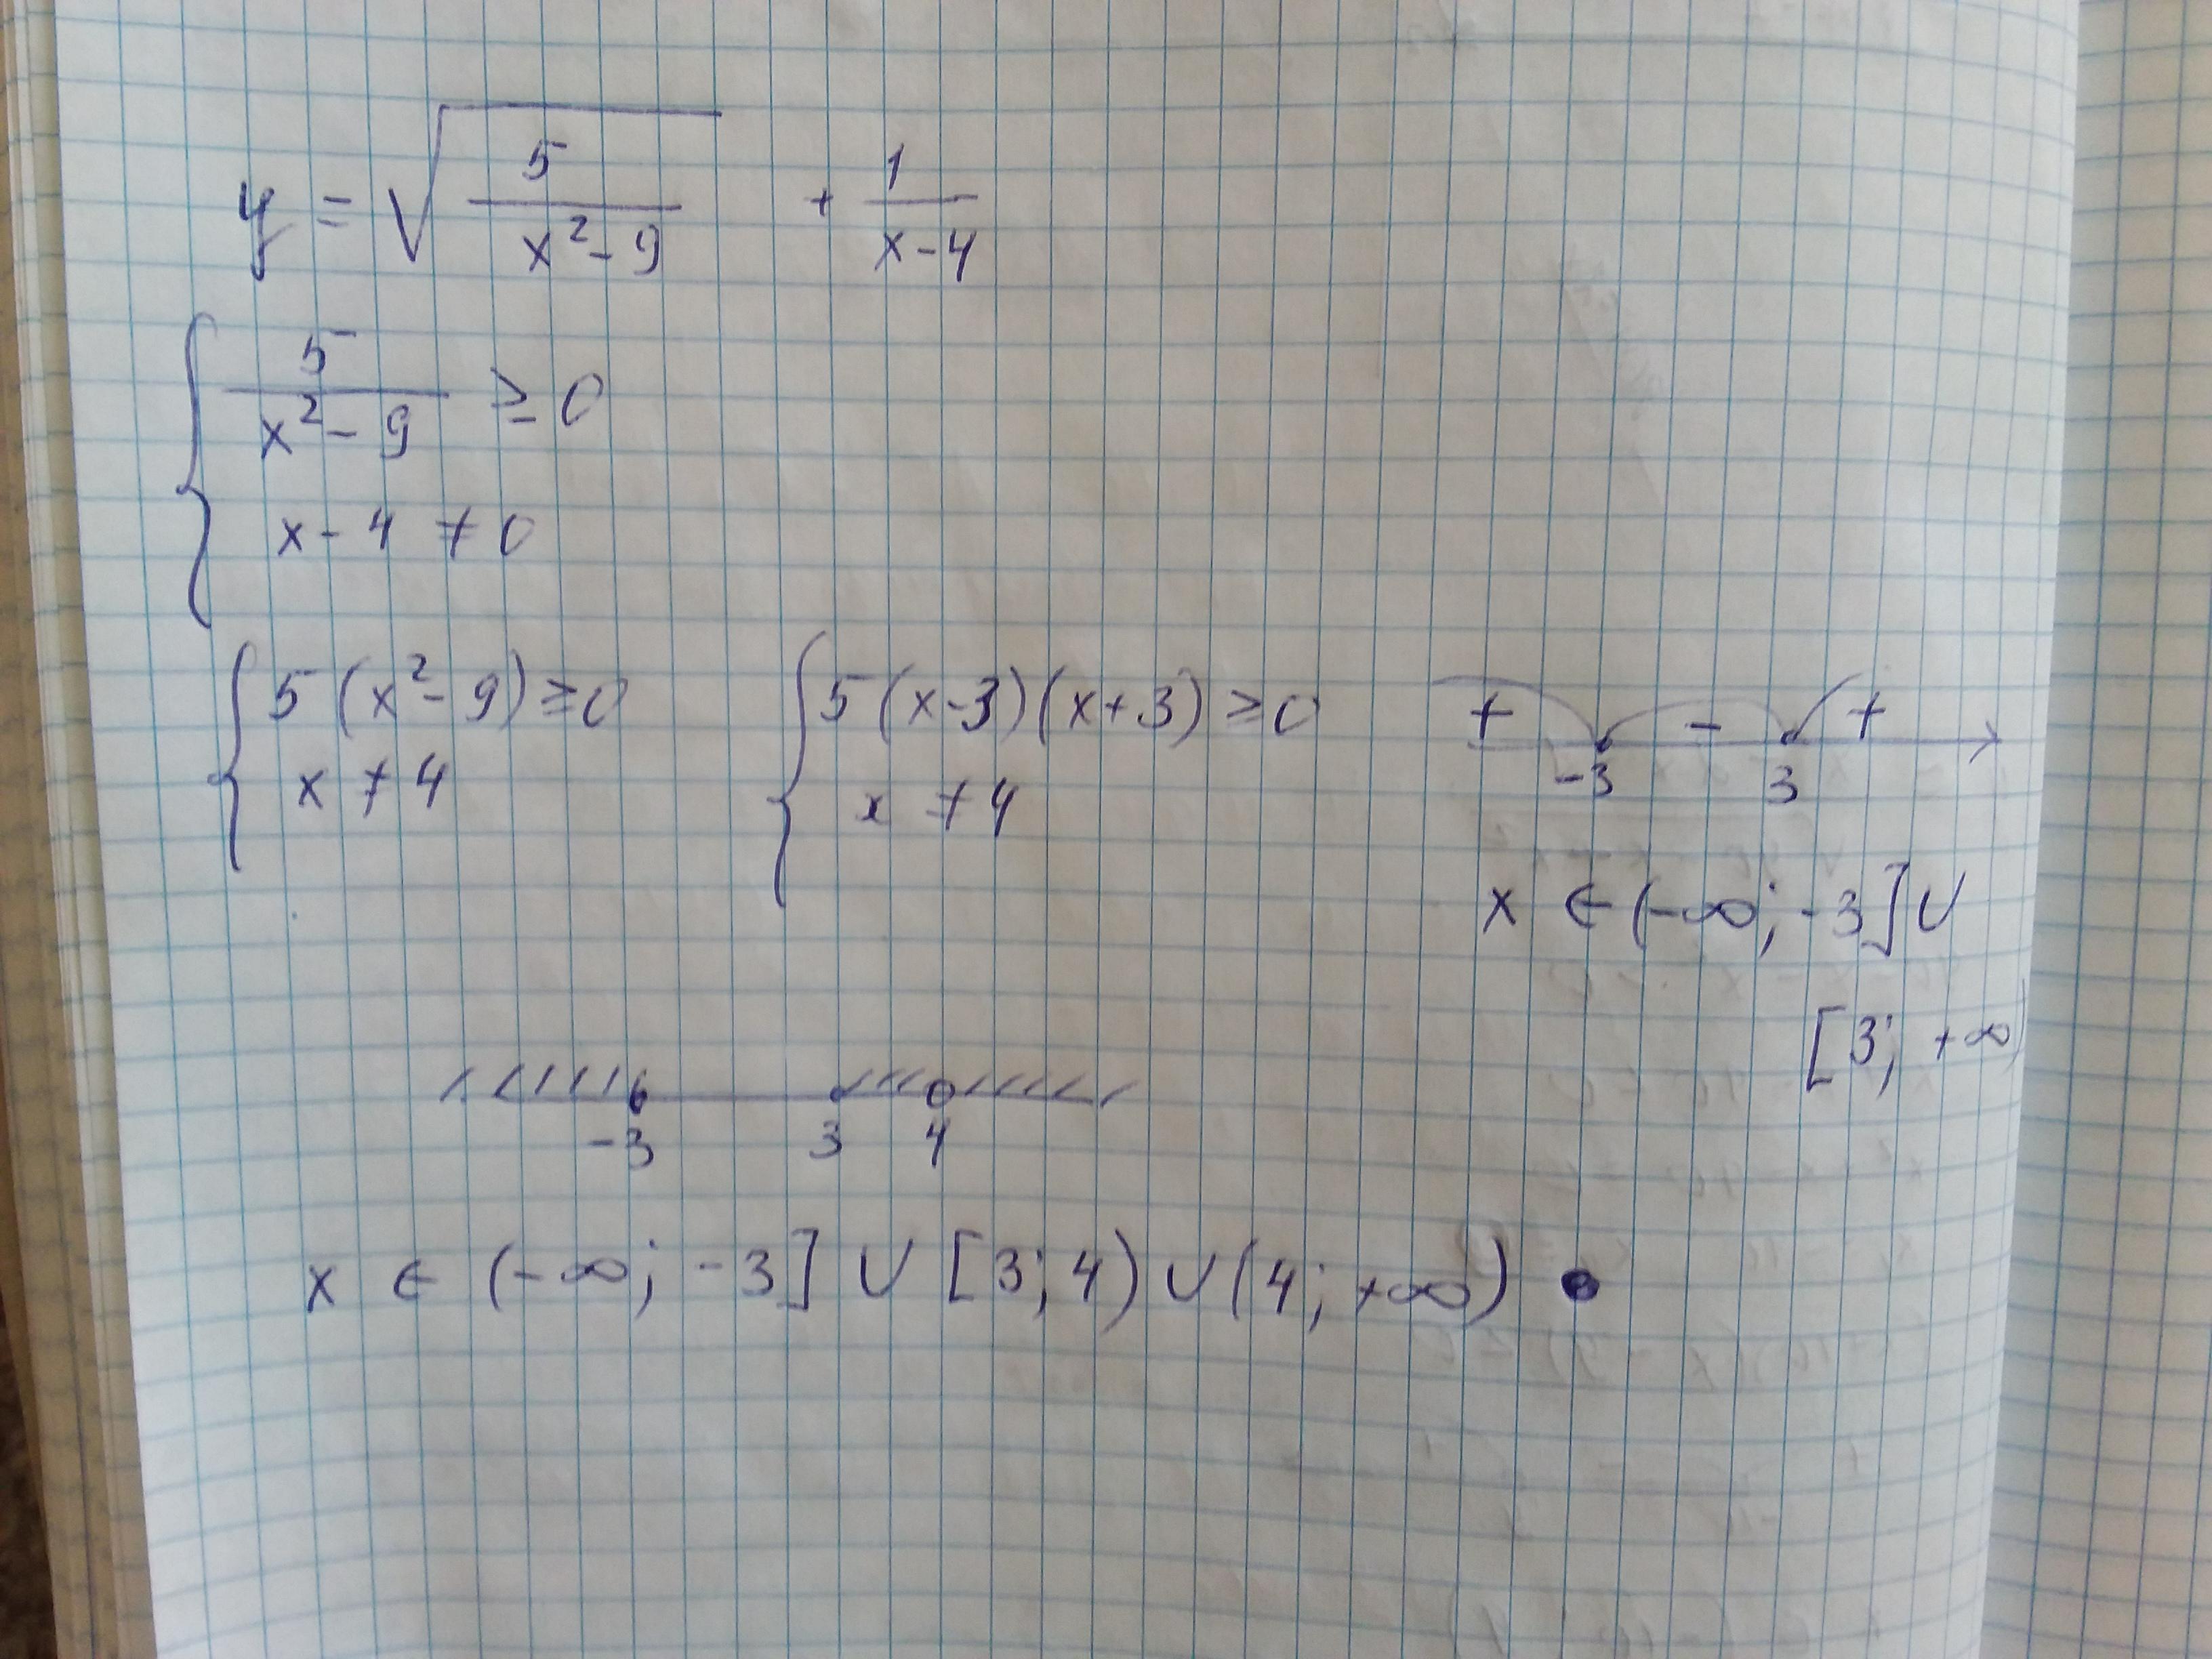 y = √(5/(x² - 9)) + 1/(x - 4)
{ 5/(x² - 9) ≥ 0
x - 4 ≠ 0
{ 5(x² - 9) ≥ 0
x ≠ 4
{ 5(x-3)(x+3) ≥ 0
x ≠ 4
+ - +
-3 3
x ∈ (-∞; -3] ∪
[3; +∞)
-3 3 4
x ∈ (-∞; -3] ∪ [3; 4) ∪ (4; +∞)